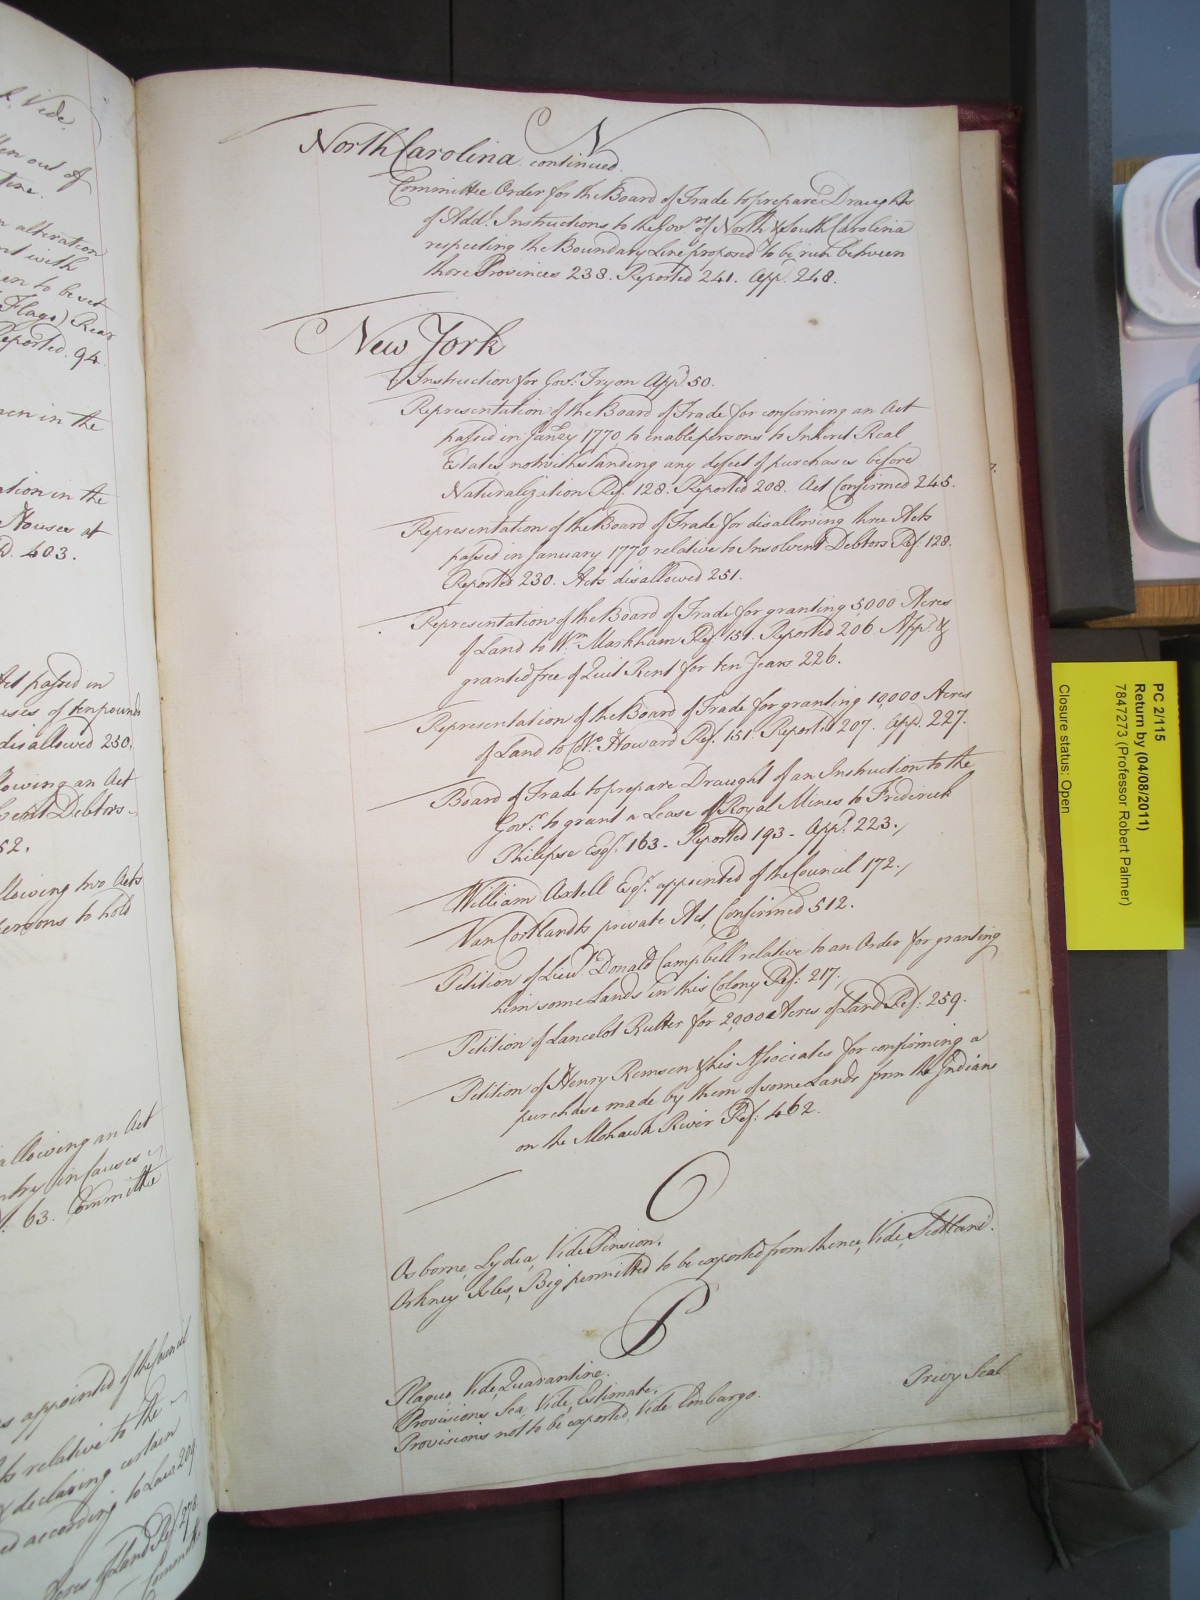 k. Vide.
out of
tine.
alteration
nt with
en to be set
Flags) Rear
Reported. 94.
men in the
ation in the
Houses at
D. 403.
Act passed in
uses of ten pounds
disallowed 250.
lowing an Act
vent Debtors
52.
llowing two Acts
persons to hold
allowing an Act
ntry in Causes
63. Committee
s appointed of the Council
ts relative to the
declaring certain
ed according to Law 209.
Acres of Land Ref. 278.
N
North Carolina continued.
Committee Order for the Board of Trade to prepare Draughts
of Addl. Instructions to the Govrs. of North & South Carolina
respecting the Boundary Line proposed to be run between
those Provinces 238. Reported 241. App. 248.
New York
Instruction for Govr. Tryon App. 50.
Representation of the Board of Trade for confirming an Act
passed in Janry 1770, to enable persons to Inherit Real
Estates, notwithstanding any defect of purchases before
Naturalization Ref. 128. Reported 208. Act Confirmed 245.
Representation of the Board of Trade for disallowing three Acts
passed in January 1770 relative to Insolvent Debtors Ref. 128.
Reported 230. Acts disallowed 251.
Representation of the Board of Trade for granting 5,000 Acres
of Land to Wm. Markham Ref. 151. Reported 206. App. &
granted free of Quit Rent for ten Years 226.
Representation of the Board of Trade for granting 10,000 Acres
of Land to Colo. Howard Ref. 151. Reported 207. App. 227.
Board of Trade to prepare Draught of an Instruction to the
Govr. to grant a Lease of Royal Mines to Frederick
Philipse Esqr. 163 - Reported 193 - Appd. 223.
William Axtell Esqr. appointed of the Council 172.
Van Cortlandts private Act, Confirmed 512.
Petition of Lieut. Donald Campbell relative to an Order for granting
him some Lands in this Colony Ref: 217.
Petition of Lancelot Rutter for 2,000 Acres of Land Ref: 259.
Petition of Henry Remsen & his Associates for confirming a
purchase made by them of some Lands from the Indians
on the Mohawk River Ref: 462.
O
Osborne, Lydia, Vide Pension.
Orkney Isles, Big permitted to be exported from thence, Vide, Scotland.
P
Plague, Vide, Quarantine.
Provisions, Sea, Vide, Estimate.
Provisions not to be exported, Vide Embargo.
Privy Seal
PC 2/115
Return by (04/08/2011)
7847273 (Professor Robert Palmer)
Closure status: Open